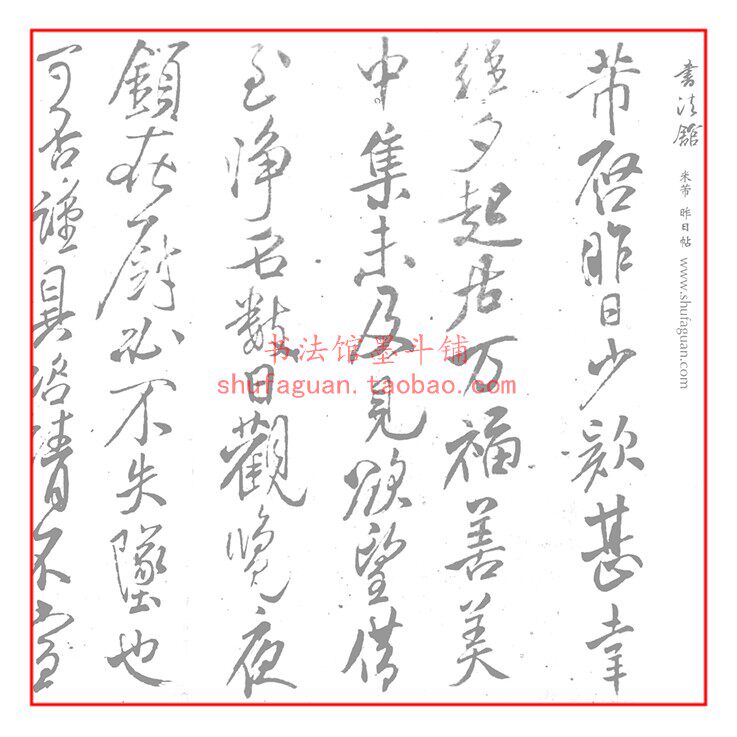 書法館 米芾 昨日帖 www.shufaguan.com
芾啓昨日少款甚幸
經夕起居万福善美
中集未及見欲望借
至淨名數日觀覽夜
鎖在厨必不失墜也
可否謹具咨請不宣
书法馆墨斗铺
shufaguan.taobao.com